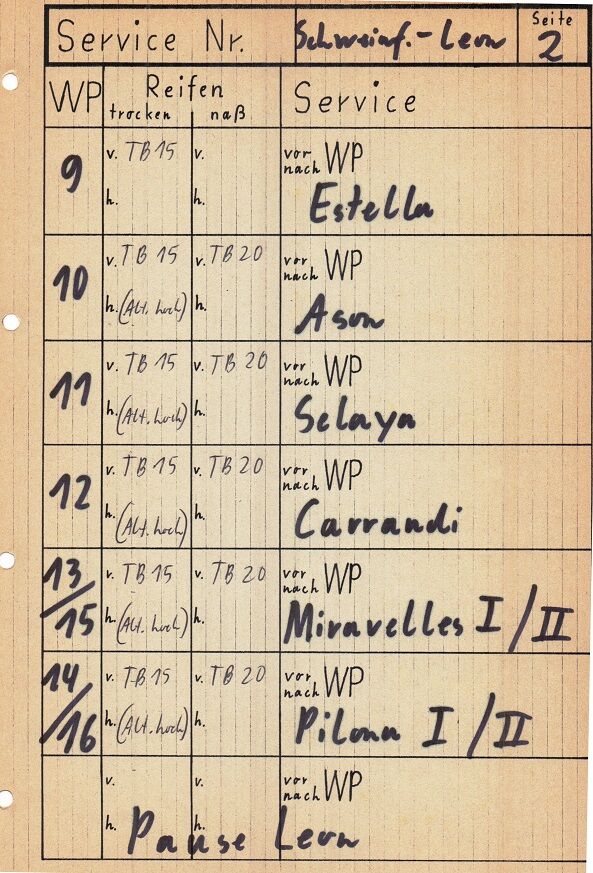 Service Nr. Schweinf.-Leon Seite 2
WP Reifen Service
trocken naß
9 v. TB 15 v. vor nach WP
h. h. Estella
10 v. TB 15 v. TB 20 vor nach WP
h. (Alt. hoch) h. Ason
11 v. TB 15 v. TB 20 vor nach WP
h. (Alt. hoch) h. Selaya
12 v. TB 15 v. TB 20 vor nach WP
h. (Alt. hoch) h. Carrandi
13/15 v. TB 15 v. TB 20 vor nach WP
h. (Alt. hoch) h. Miravelles I/II
14/16 v. TB 15 v. TB 20 vor nach WP
h. (Alt. hoch) h. Pilona I/II
v. v. vor nach WP
h. h. Pause Leon